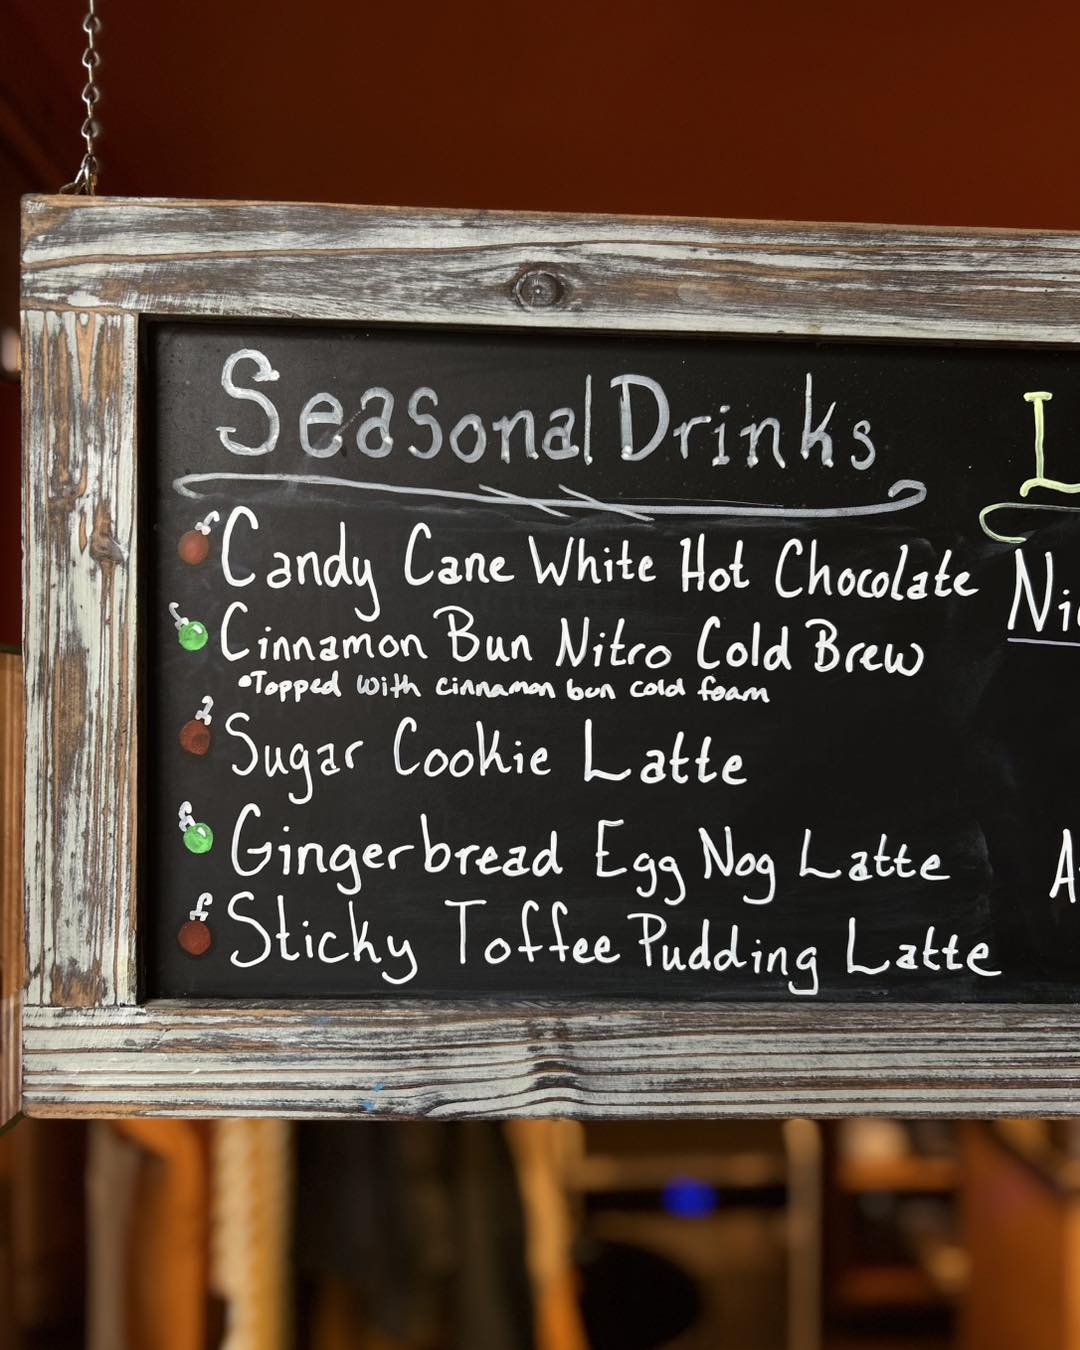 Seasonal Drinks
Candy Cane White Hot Chocolate
Cinnamon Bun Nitro Cold Brew
•Topped with cinnamon bun cold foam
Sugar Cookie Latte
Gingerbread Egg Nog Latte
Sticky Toffee Pudding Latte